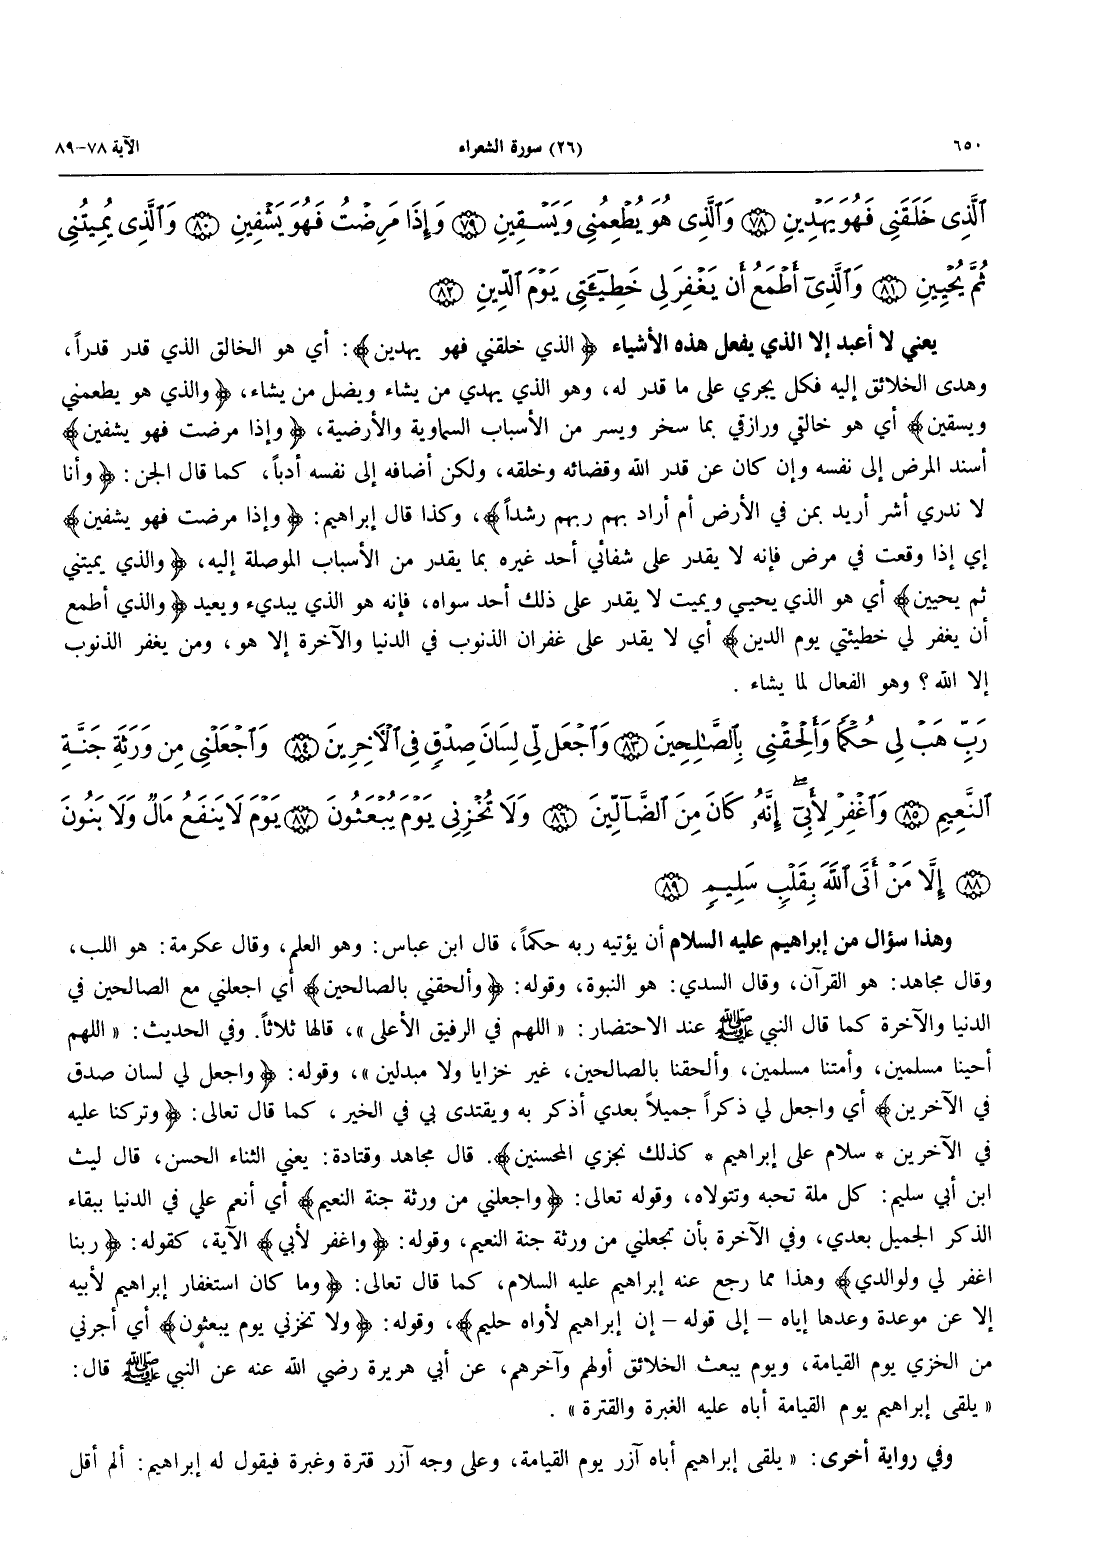 ٦٥٠ (٢٦) سورة الشعراء الآية ٧٨-٨٩
ٱلَّذِى خَلَقَنِى فَهُوَ يَهْدِينِ ﴿٧٨﴾ وَٱلَّذِى هُوَ يُطْعِمُنِى وَيَسْقِينِ ﴿٧٩﴾ وَإِذَا مَرِضْتُ فَهُوَ يَشْفِينِ ﴿٨٠﴾ وَٱلَّذِى يُمِيتُنِى
ثُمَّ يُحْيِينِ ﴿٨١﴾ وَٱلَّذِىٓ أَطْمَعُ أَن يَغْفِرَ لِى خَطِيٓـَٔتِى يَوْمَ ٱلدِّينِ ﴿٨٢﴾
يعني لا أعبد إلا الذي يفعل هذه الأشياء ﴿الذي خلقني فهو يهدين﴾: أي هو الخالق الذي قدر قدراً،
وهدى الخلائق إليه فكل يجري على ما قدر له، وهو الذي يهدي من يشاء ويضل من يشاء، ﴿والذي هو يطعمني
ويسقين﴾ أي هو خالقي ورازقي بما سخر ويسر من الأسباب السماوية والأرضية، ﴿وإذا مرضت فهو يشفين﴾
أسند المرض إلى نفسه وإن كان عن قدر الله وقضائه وخلقه، ولكن أضافه إلى نفسه أدباً، كما قال الجن: ﴿وأنا
لا ندري أشر أريد بمن في الأرض أم أراد بهم ربهم رشداً﴾، وكذا قال إبراهيم: ﴿وإذا مرضت فهو يشفين﴾
إي إذا وقعت في مرض فإنه لا يقدر على شفائي أحد غيره بما يقدر من الأسباب الموصلة إليه، ﴿والذي يميتني
ثم يحيين﴾ أي هو الذي يحيي ويميت لا يقدر على ذلك أحد سواه، فإنه هو الذي يبديء ويعيد ﴿والذي أطمع
أن يغفر لي خطيئتي يوم الدين﴾ أي لا يقدر على غفران الذنوب في الدنيا والآخرة إلا هو، ومن يغفر الذنوب
إلا الله؟ وهو الفعال لما يشاء .
رَبِّ هَبْ لِى حُكْمًا وَأَلْحِقْنِى بِٱلصَّـٰلِحِينَ ﴿٨٣﴾ وَٱجْعَل لِّى لِسَانَ صِدْقٍ فِى ٱلْـَٔاخِرِينَ ﴿٨٤﴾ وَٱجْعَلْنِى مِن وَرَثَةِ جَنَّةِ
ٱلنَّعِيمِ ﴿٨٥﴾ وَٱغْفِرْ لِأَبِىٓ إِنَّهُۥ كَانَ مِنَ ٱلضَّآلِّينَ ﴿٨٦﴾ وَلَا تُخْزِنِى يَوْمَ يُبْعَثُونَ ﴿٨٧﴾ يَوْمَ لَا يَنفَعُ مَالٌ وَلَا بَنُونَ
﴿٨٨﴾ إِلَّا مَنْ أَتَى ٱللَّهَ بِقَلْبٍ سَلِيمٍ ﴿٨٩﴾
وهذا سؤال من إبراهيم عليه السلام أن يؤتيه ربه حكماً، قال ابن عباس: وهو العلم، وقال عكرمة: هو اللب،
وقال مجاهد: هو القرآن، وقال السدي: هو النبوة، وقوله: ﴿وألحقني بالصالحين﴾ أي اجعلني مع الصالحين في
الدنيا والآخرة كما قال النبي ﷺ عند الاحتضار: «اللهم في الرفيق الأعلى»، قالها ثلاثاً. وفي الحديث: «اللهم
أحينا مسلمين، وأمتنا مسلمين، وألحقنا بالصالحين، غير خزايا ولا مبدلين»، وقوله: ﴿واجعل لي لسان صدق
في الآخرين﴾ أي واجعل لي ذكراً جميلاً بعدي أذكر به ويقتدى بي في الخير، كما قال تعالى: ﴿وتركنا عليه
في الآخرين * سلام على إبراهيم * كذلك نجزي المحسنين﴾. قال مجاهد وقتادة: يعني الثناء الحسن، قال ليث
ابن أبي سليم: كل ملة تحبه وتتولاه، وقوله تعالى: ﴿واجعلني من ورثة جنة النعيم﴾ أي أنعم علي في الدنيا ببقاء
الذكر الجميل بعدي، وفي الآخرة بأن تجعلني من ورثة جنة النعيم، وقوله: ﴿واغفر لأبي﴾ الآية، كقوله: ﴿ربنا
اغفر لي ولوالدي﴾ وهذا مما رجع عنه إبراهيم عليه السلام، كما قال تعالى: ﴿وما كان استغفار إبراهيم لأبيه
إلا عن موعدة وعدها إياه - إلى قوله - إن إبراهيم لأواه حليم﴾، وقوله: ﴿ولا تخزني يوم يبعثون﴾ أي أجرني
من الخزي يوم القيامة، ويوم يبعث الخلائق أولهم وآخرهم، عن أبي هريرة رضي الله عنه عن النبي ﷺ قال:
«يلقى إبراهيم يوم القيامة أباه عليه الغبرة والقترة» .
وفي رواية أخرى: «يلقى إبراهيم أباه آزر يوم القيامة، وعلى وجه آزر قترة وغبرة فيقول له إبراهيم: ألم أقل